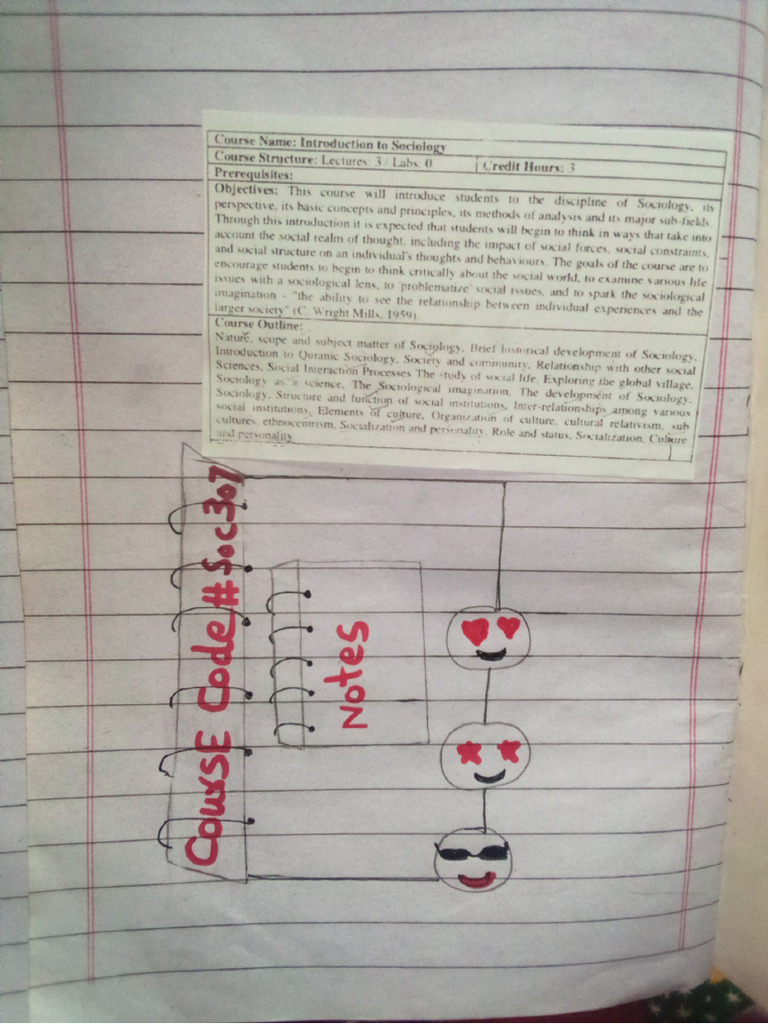 Course Name: Introduction to Sociology
Course Structure: Lectures: 3 / Labs: 0 Credit Hours: 3
Prerequisites:
Objectives: This course will introduce students to the discipline of Sociology, its
perspective, its basic concepts and principles, its methods of analysis and its major sub-fields.
Through this introduction it is expected that students will begin to think in ways that take into
account the social realm of thought, including the impact of social forces, social constraints,
and social structure on an individual's thoughts and behaviours. The goals of the course are to
encourage students to begin to think critically about the social world, to examine various life
issues with a sociological lens, to 'problematize' social issues, and to spark the sociological
imagination - "the ability to see the relationship between individual experiences and the
larger society" (C. Wright Mills, 1959).
Course Outline:
Nature, scope and subject matter of Sociology, Brief historical development of Sociology,
Introduction to Quranic Sociology, Society and community, Relationship with other social
Sciences, Social Interaction Processes The study of social life, Exploring the global village,
Sociology as a science, The Sociological imagination, The development of Sociology,
Sociology, Structure and function of social institutions, Inter-relationships among various
social institutions, Elements of culture, Organization of culture, cultural relativism, sub
cultures, ethnocentrism, Socialization and personality, Role and status, Socialization, Culture
and personality
CoursE Code # Soc307
Notes